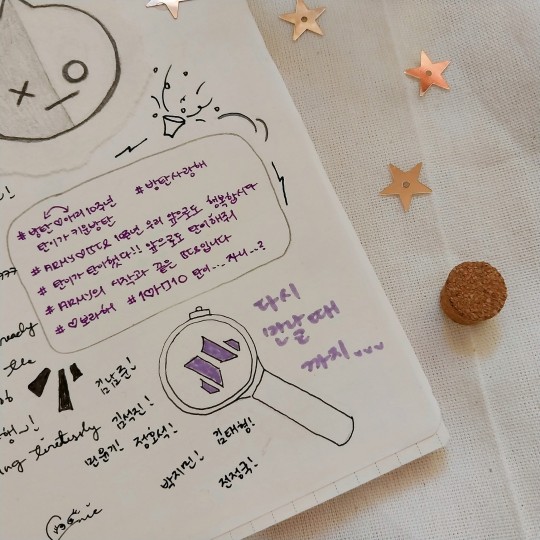 #방탄♡아미10주년 #방탄사랑해
탄이가 키운방탄
#ARMY♡BTS 10년번 우리 앞으로도 행복합시다
#탄이가 탄이했다!! 앞으로도 탄이해줘
#ARMY의 시작과 끝은 BTS입니다
#♡보라해 #1001010 탄이...자니..?
다시
만날 때
까지...
김남준!
김석진!
민윤기! 정호석!
김태형!
박지민!
전정국!